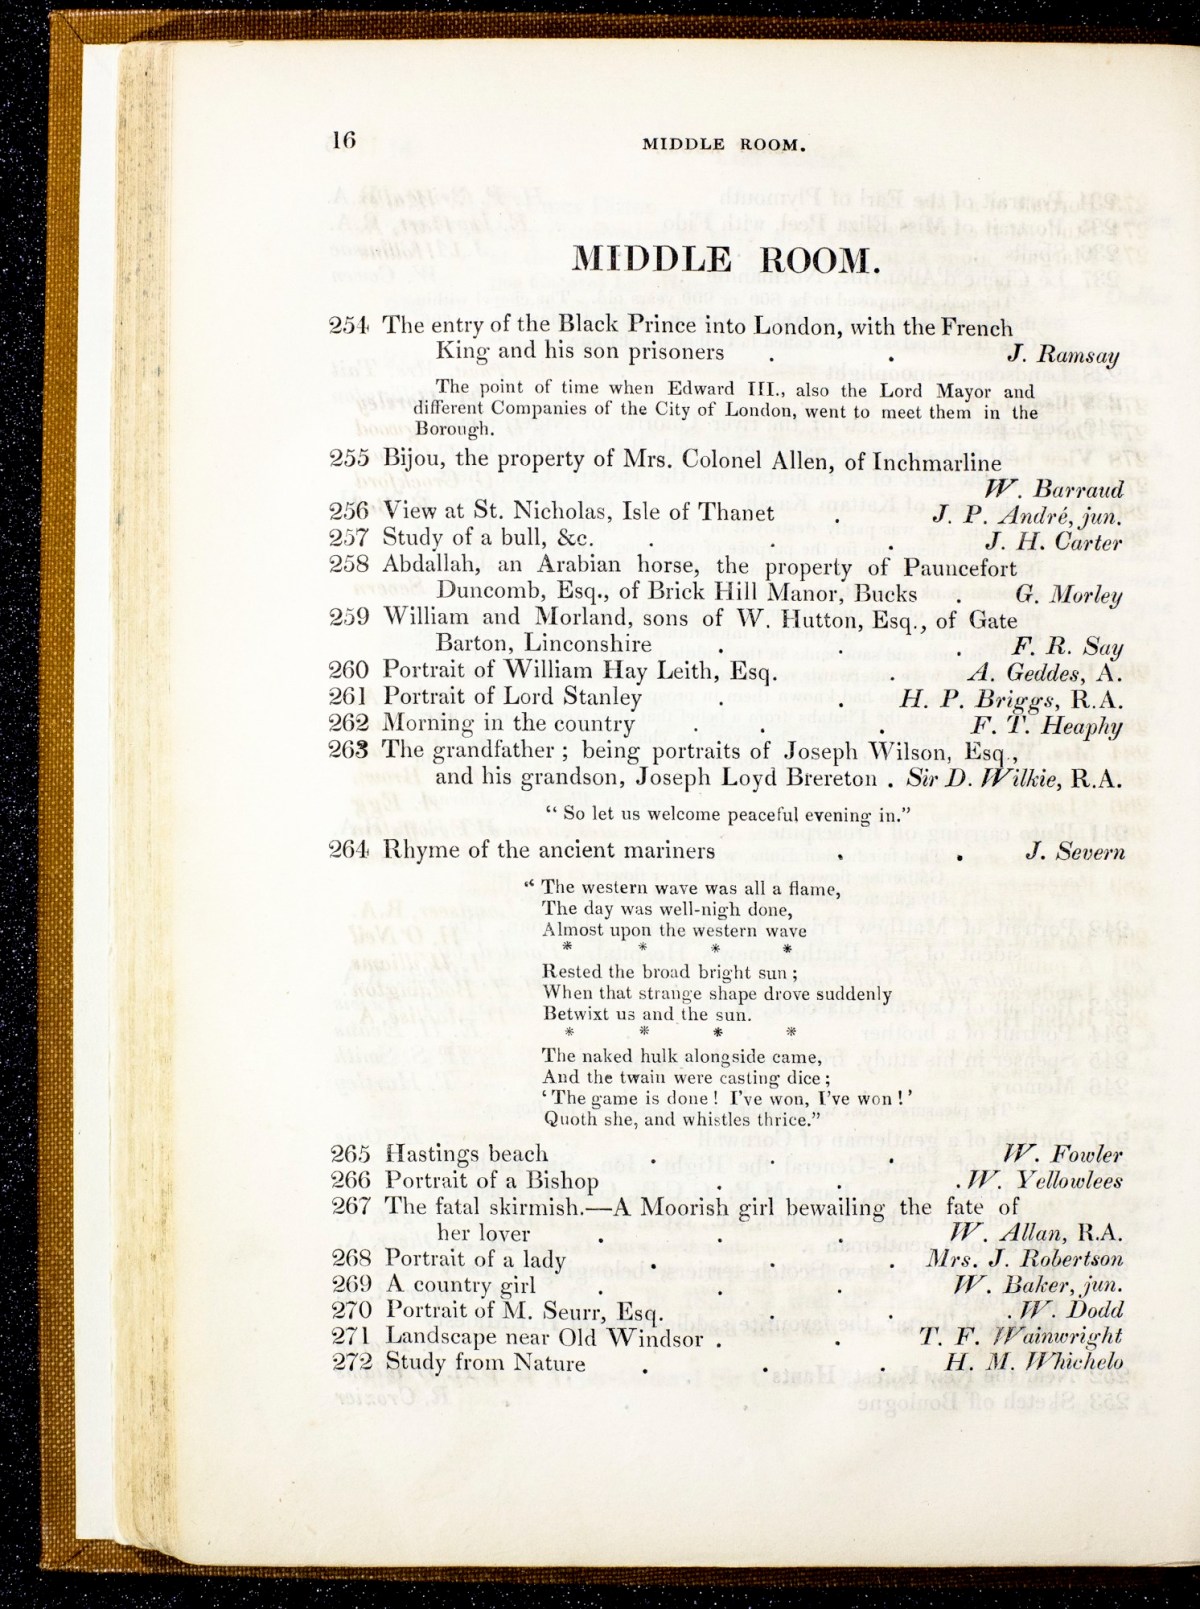 16 MIDDLE ROOM.
MIDDLE ROOM.
254 The entry of the Black Prince into London, with the French
King and his son prisoners . . J. Ramsay
The point of time when Edward III., also the Lord Mayor and
different Companies of the City of London, went to meet them in the
Borough.
255 Bijou, the property of Mrs. Colonel Allen, of Inchmarline
W. Barraud
256 View at St. Nicholas, Isle of Thanet . J. P. André, jun.
257 Study of a bull, &c. . . . J. H. Carter
258 Abdallah, an Arabian horse, the property of Pauncefort
Duncomb, Esq., of Brick Hill Manor, Bucks . G. Morley
259 William and Morland, sons of W. Hutton, Esq., of Gate
Barton, Linconshire . . . F. R. Say
260 Portrait of William Hay Leith, Esq. . A. Geddes, A.
261 Portrait of Lord Stanley . . H. P. Briggs, R.A.
262 Morning in the country . . . F. T. Heaphy
263 The grandfather ; being portraits of Joseph Wilson, Esq.,
and his grandson, Joseph Loyd Brereton . Sir D. Wilkie, R.A.
“ So let us welcome peaceful evening in.”
264 Rhyme of the ancient mariners . . J. Severn
“ The western wave was all a flame,
The day was well-nigh done,
Almost upon the western wave
* * * *
Rested the broad bright sun ;
When that strange shape drove suddenly
Betwixt us and the sun.
* * * *
The naked hulk alongside came,
And the twain were casting dice ;
‘ The game is done ! I’ve won, I’ve won !’
Quoth she, and whistles thrice.”
265 Hastings beach . . . W. Fowler
266 Portrait of a Bishop . . . W. Yellowlees
267 The fatal skirmish.—A Moorish girl bewailing the fate of
her lover . . . W. Allan, R.A.
268 Portrait of a lady . . . Mrs. J. Robertson
269 A country girl . . . W. Baker, jun.
270 Portrait of M. Seurr, Esq. . . W. Dodd
271 Landscape near Old Windsor . . T. F. Wainwright
272 Study from Nature . . . H. M. Whichelo